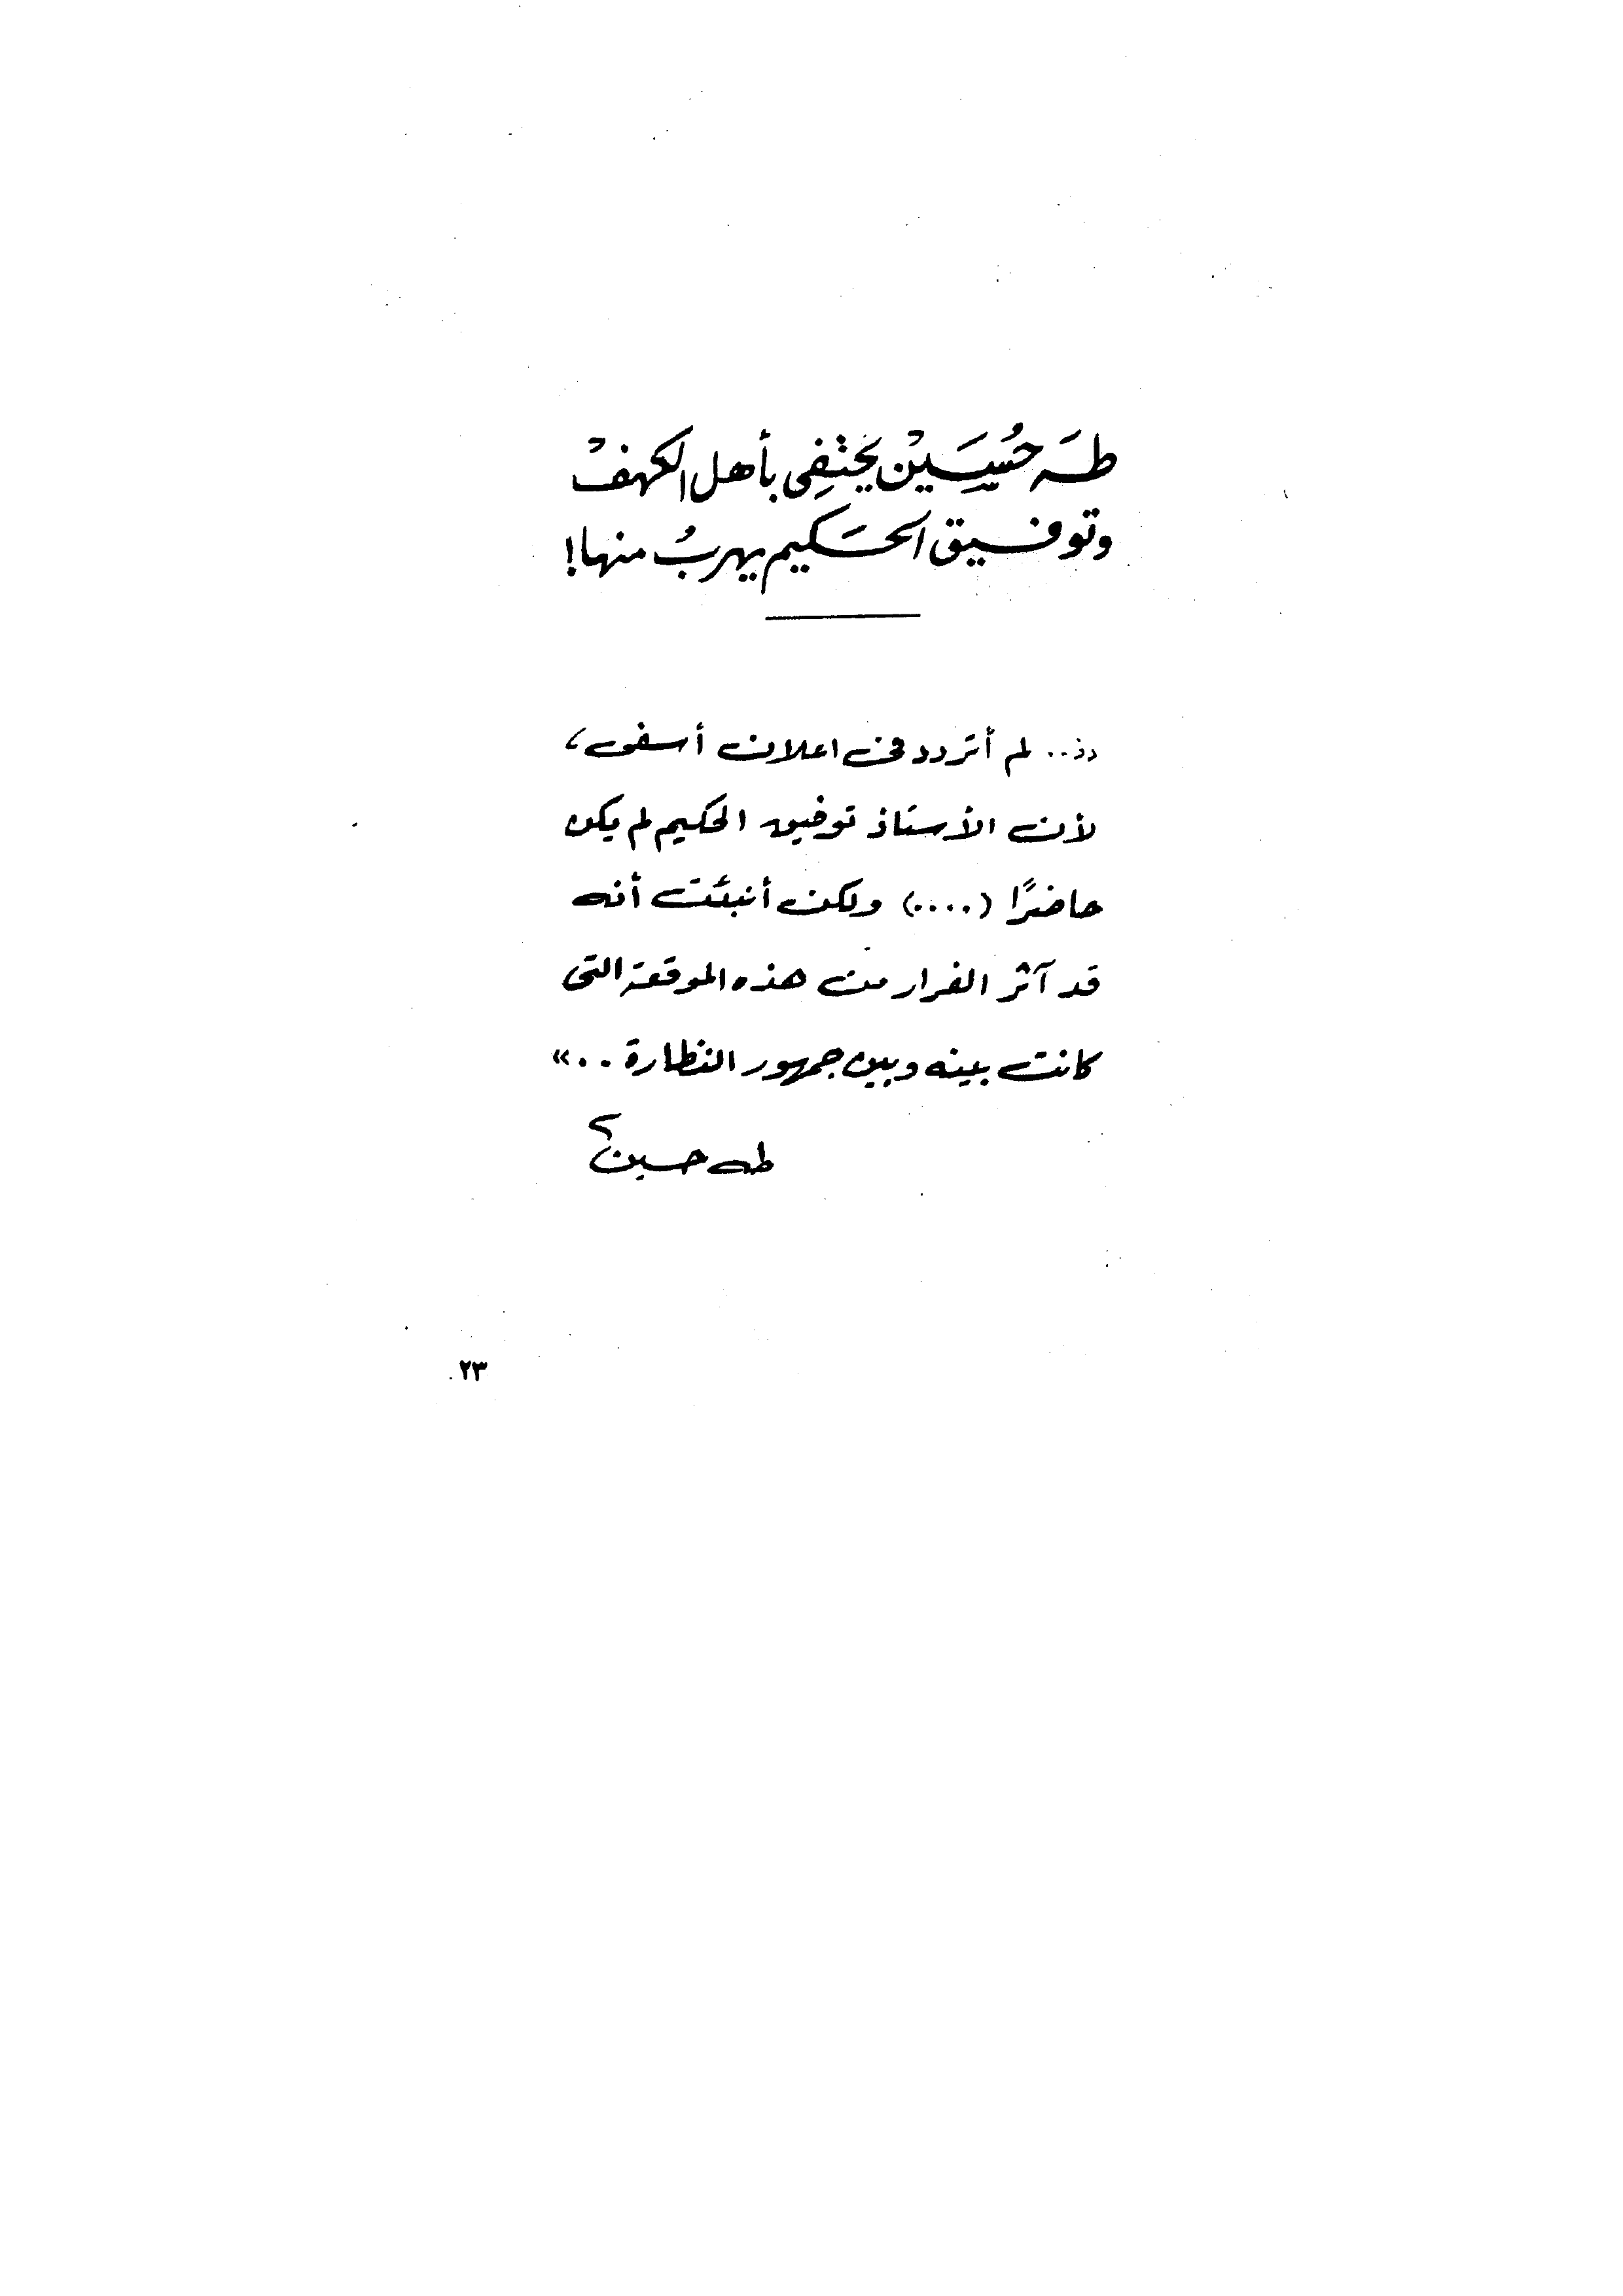 طه حُسَين يحتفِى بأهل الكهف
وتوفيق الحكيم يهربُ منها!
«.. لم أتردد فى اعلان أسفى،
لأن الأستاذ توفيق الحكيم لم يكن
حاضرًا (....) ولكن أنبئت أنه
قد آثر الفرار من هذه الموقعة التى
كانت بينه وبين جمهور النظارة ..»
طه حسين
٢٣